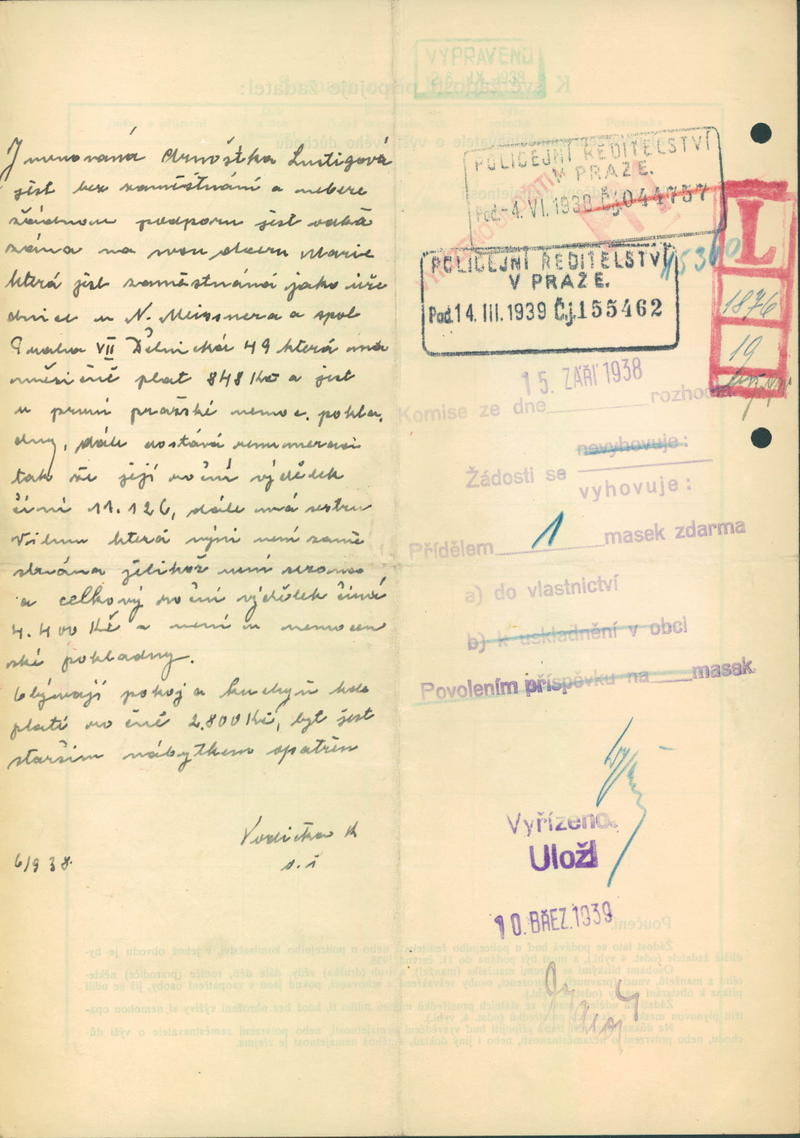 Jmenovaná Arnoštka Lustigová
jest bez zaměstnání a nebere
žádnou podporu jest odká
zána na svou dceru Marie
která jest zaměstnána jako úře
dnice u N. Meissnera a spol
Praha VII Dělnická 49 která má
měsíčně plat 848 Kč a jest
u první pražské nemoc. pokla
dny, dále dostává remuneraci
tak že její roční výdělek
činí 11.126, dále má sestru
Vilmu která nyní není zamě
stnána jelikož není
a celkový roční výdělek činí
4.400 Kč a není u nemocen
ské pokladny.
Obývají pokoj a kuchyň kde
platí ročně 2.800 Kč, byt jest
starším nábytkem opatřen
Vodička K
6/9 38.
VYPRAVENO
IX. 1938
POLICEJNÍ ŘEDITELSTVÍ
V PRAZE.
Pod. -4. VI. 1938 Čj. 044757
POLICEJNÍ ŘEDITELSTVÍ
V PRAZE.
Pod. 14. III. 1939 Č.j. 155462
L
1876
19
15. ZÁŘÍ 1938
Komise ze dne rozhodla
nevyhovuje:
Žádosti se
vyhovuje:
Přídělem 1 masek zdarma
a) do vlastnictví
b) k uskladnění v obci
Povolením příspěvku na masek
Vyřízeno.
Ulož!
10. BŘEZ. 1939